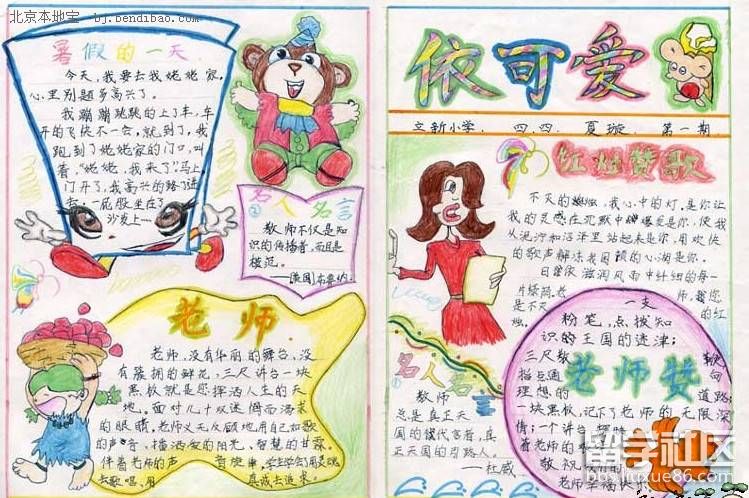 北京本地宝 - bj.bendibao.com
暑假的一天
今天,我要去我姥姥家,
心里别提多高兴了。
我蹦蹦跳跳的上了车,车
开的飞快不一会,就到了,我
跑到了姥姥家的门口,叫
着,“姥姥,我来了”马上,
门开了,我高兴的跨门进
去,一屁股坐在了
沙发上……
名人名言
②
教师不仅是知
识的传播者,而且是
模范。
老师
老师,没有华丽的舞台,没
有簇拥的鲜花,三尺讲台一块
黑板就是您挥洒人生的天
地。面对几十双迷惘而渴求
的眼睛,老师义无反顾地用自己如歌
的声音,播洒爱的阳光、智慧的甘霖。
伴着老师的声
去歌唱、用 真诚去追求。
依可爱
立新小学. 四.四. 夏璇. 第一期
红烛赞歌
不灭的 ,我心中的灯,是你让
我的灵感在沉默中爆发是你,使我
从泥泞和沼泽里站起来是你,用欢快
的歌声解冻我困顿的心涧是你。
日曾依滋润风雨中纤细的每一
片绿简.老 师,您
是不灭 一支 的红
烛。
粉笔,点拨知
识的王国的迷津;
三尺教 鞭
指点通 向
理想的 道路;
一块黑板,记下了老师的无限深
情;一个讲台,辉映
着老师的
敬祝
老师幸福快乐
老师赞
名人名言
①
教师
总是真正天
国的代言者,真
正天国的引路人。
—杜威
留学社区
liuxue86.com